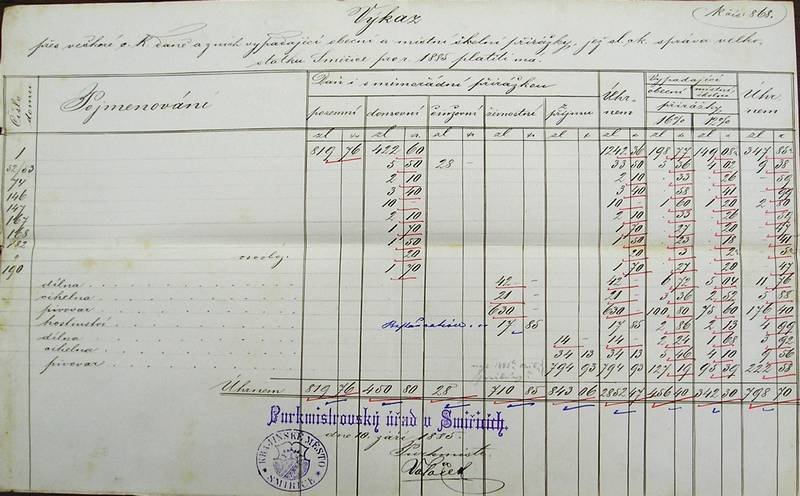 Výkaz
přes veškeré c. k. daně a z nich vypadající obecní a místní školní přirážky, jež sl. ck. správa velko-
statku Smiřice pro r. 1885 platiti má.
Číslo domu Pojmenování Daň i s mimořádní přirážkou Úhrnem Vypadající obecní místní školní přirážky 16% 12% Úhrnem
pozemní domovní činžovní živnostní příjmu
zl kr zl kr zl kr zl kr zl kr zl kr zl kr zl kr zl kr
1 819 76 422 60 1242 36 198 77 149 08 347 85
52/63 5 50 28 - 33 50 5 36 4 02 9 38
74 2 10 2 10 - 33 - 26 - 59
146 3 40 3 40 - 58 - 41
147 10 - 10 - 1 60 1 20 2 80
167 2 10 2 10 - 33 - 26 - 59
168 1 70 1 70 - 27 - 20 - 47
182 1 50 1 50 - 23 - 18 - 41
" osoby. - 20 - 20 - 3 - 2
190 1 70 1 70 - 27 - 20 - 47
dílna 42 - 42 - 6 72 5 04 11 76
cihelna 21 - 21 - 3 36 2 52 5 88
pivovar 630 - 630 - 100 80 75 60 176 40
hostinství 17 85 17 85 2 86 2 13 4 99
dílna 14 - 14 - 2 24 1 68 3 92
cihelna 34 13 34 13 5 46 4 10 9 56
pivovar 794 93 794 93 127 19 95 39 222 58
Úhrnem 819 76 450 80 28 - 710 85 843 06 2852 47 456 40 342 30 798 70
Purkmistrovský úřad v Smiřicích.
dne 10. září 1885.
Purkmistr
KRAJINSKÉ MĚSTO SMIŘICE